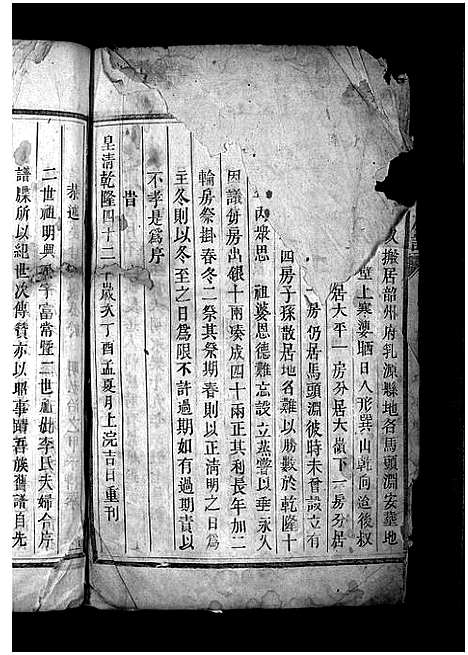 搬居韶州府乳源縣地名馬頭淵安墓地
壁上寒婆晒日人形巽山乾向迨後叔
居大平一房分居大嶺下一房分居
房仍居馬頭淵彼時未曾設立有
四房子孫散居地名難以勝數於乾隆十
內衆思 祖婆恩德難忘設立蒸嘗以垂永久
因議每房出銀十兩湊成四十兩正其利長年加二
輪房祭掛春冬二祭其祭期春則以正清明之日為
主冬則以冬至之日為限不許過期如有過期責以
不孝是為序
昔
皇清乾隆四十二年歲次丁酉孟夏月上浣吉日重刊
恭進
二世祖明興 字富常暨二世祖妣李氏夫婦合序
譜牒所以紀世次傳贊亦以昭事蹟吾族舊譜自先